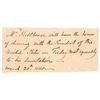 Mr Hillhouse will have the honor
of dining with the President of the
United States on Friday next agreeably
to his invitation
March 20th